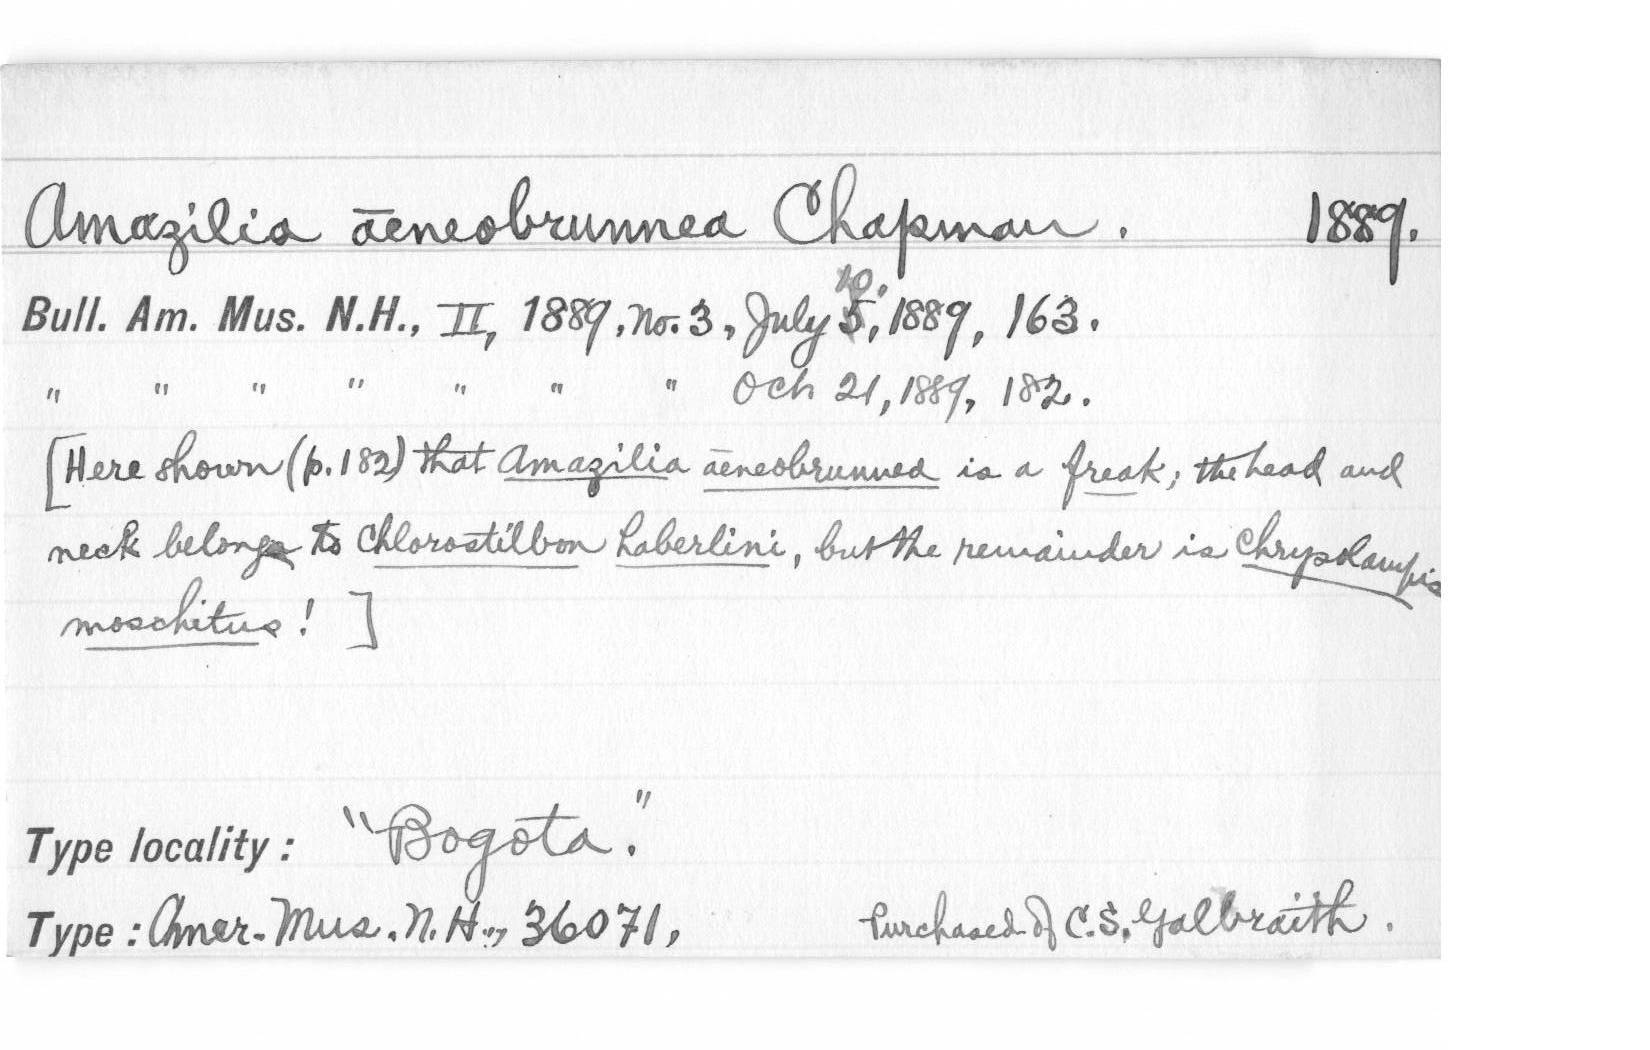 Amazilia aeneobrunnea Chapman. 1889.
10,
Bull. Am. Mus. N.H., II, 1889, no. 3, July 5, 1889, 163.
" " " " " " " Oct. 21, 1889, 182.
[Here shown (p. 182) that Amazilia aeneobrunnea is a freak; the head and
neck belongs to Chlorostilbon haberlini, but the remainder is Chrysolampis
moschitus! ]
Type locality: "Bogota."
Type: Amer. Mus. N. H., 36071, Purchased of C. S. Galbraith.